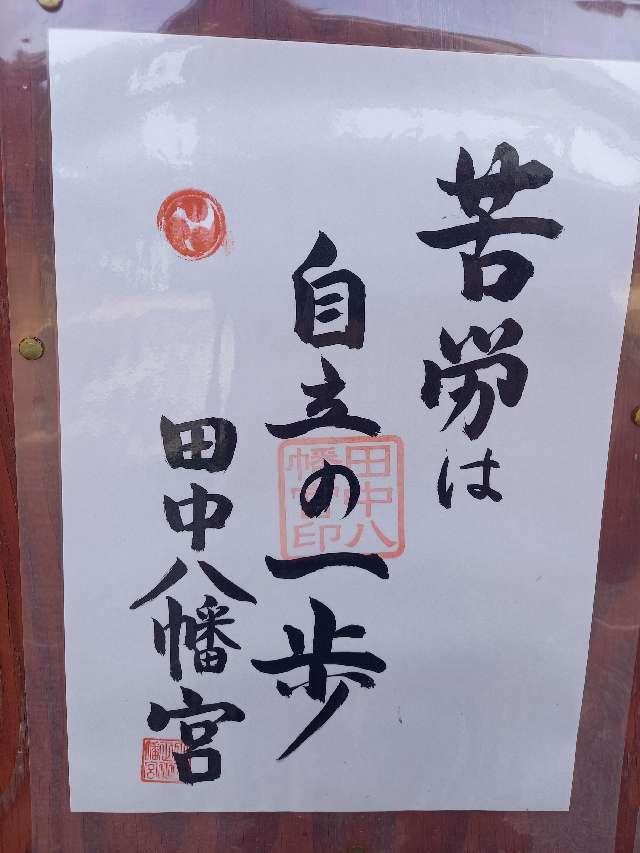 苦労は
自立の一歩
田中八幡宮
田中八
幡宮印